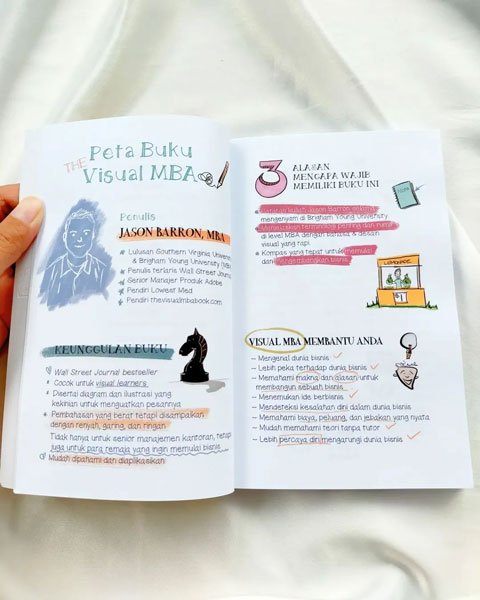 Peta Buku
THE Visual MBA
Penulis
JASON BARRON, MBA
Lulusan Southern Virginia Univers
& Brigham Young University (
Penulis terlaris Wall Street Journ
Senior Manajer Produk Adobe
Pendiri Lowest Med
Pendiri thevisualmbabook.com
KEUNGGULAN BUKU
Wall Street Journal bestseller
Cocok untuk visual learners
Disertai diagram dan ilustrasi yang
kekinian untuk menguatkan pesannya
Pembahasan yang berat tetapi disampaikan
dengan renyah, garing, dan ringan
Tidak hanya untuk senior manajemen kantoran, tetapi
juga untuk para remaja yang ingin memulai bisnis
Mudah dipahami dan diaplikasikan
3 ALASAN
MENGAPA WAJIB
MEMILIKI BUKU INI
Catatan kuliah Jason Barron selama
mengenyam di Brigham Young University
terminologi penting dan rumit
di level MBA dengan bahasa & desain
visual yang rapi
Kompas yang tepat untuk memulai
dan mengembangkan bisnis
NOTE
LEMONADE
$1
VISUAL MBA MEMBANTU ANDA
– Mengenal dunia bisnis
– Lebih peka terhadap dunia bisnis
– Memahami makna dan alasan untuk
membangun sebuah bisnis
– Menemukan ide berbisnis
– Mendeteksi kesalahan dini dalam dunia bisnis
– Memahami biaya, peluang, dan jebakan yang nyata
– Mudah memahami teori tanpa tutor
– Lebih percaya diri mengarungi dunia bisnis